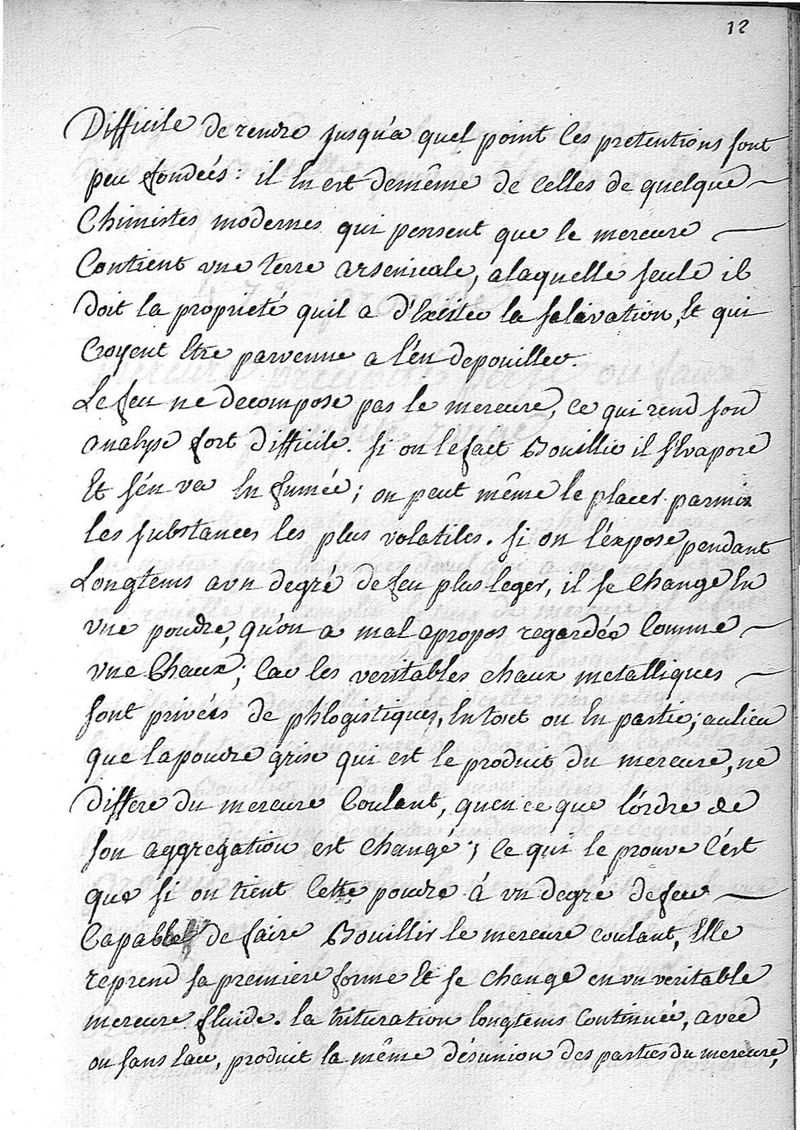 12
Difficile de rendre jusqu'a quel point les pretentions sont
peu fondeés : il En est demême de Celles de quelque
Chimistes modernes qui pensent que le mercure
Contient vne terre arsenicale, alaquelle seule il
doit la proprieté quil a d'Exciter la salivation, Et qui
Croyent Etre parvenue a l'én depouiller.
Le feu ne decompose pas le mercure, Ce qui rend son
analyse fort difficile. si on le fait Bouillir il s'Evapore
Et s'én va En fumée ; on peut même le placer parmix
les substances les plus volatiles. si on l'éxpose pendant
Longtems avn degre defeu plus leger, il se Change En
vne poudre, qu'on a mal apropos regardée Comme
vne Chaux ; Car les veritables chaux metalliques
sont priveés de phlogistiques, En tout ou En partie ; aulieu
que lapoudre grise qui est le produit du mercure, ne
differe du mercure Coulant, quen ce que l'órdre de
son aggregation est Changé ; Ce qui le prouve C'ést
que si on tient Cette poudre á vn degré defeu
Capable de faire Bouillir le mercure coulant, Elle
reprend sa premiere forme Et se change en vn veritable
mercure fluide. la trituration longtems Continuée, avec
ou sans Eau, produit la même désunion des parties du mercure,